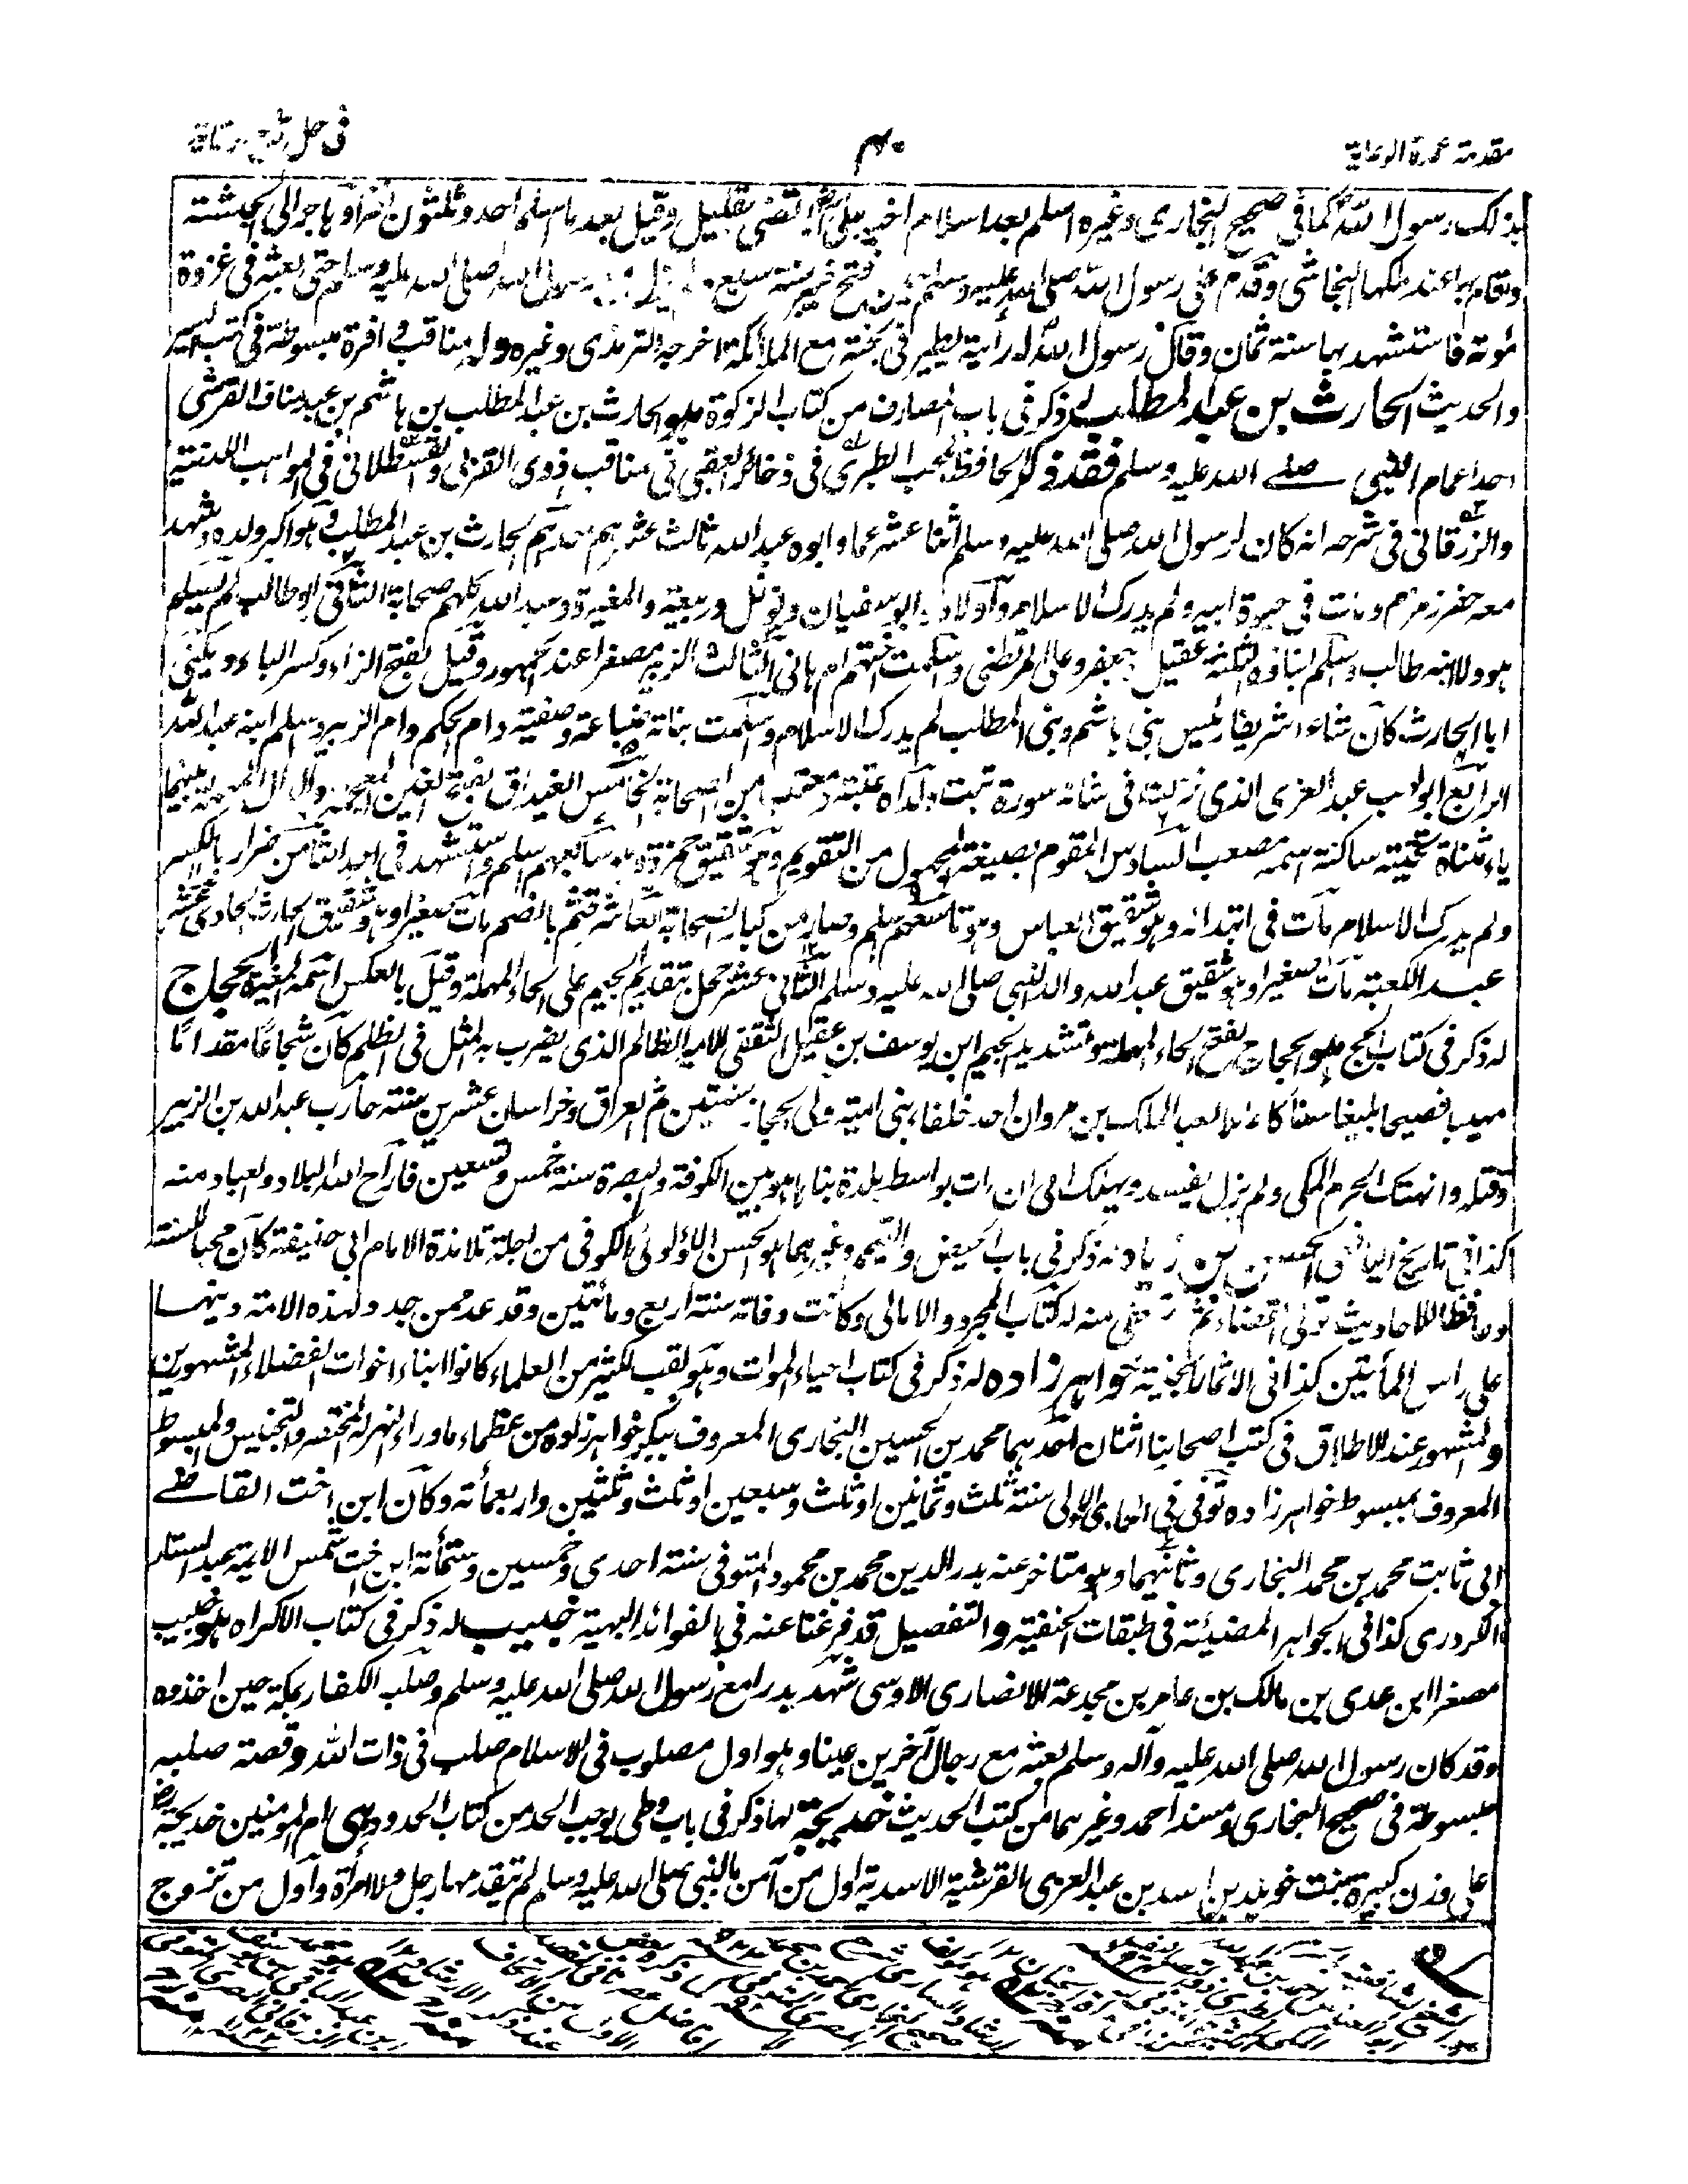 مقدمة عمدة الرعاية
۴۰
فى حل شرح الوقاية
بذلك رسول الله كما فى صحيح البخارى وغيره اسلم بعد اسلام اخيه على المرتضى بقليل وقيل بعد ما اسلم احد وثلثون انسانا وهاجر الى الحبشة
واقام بها عند ملكها النجاشى وقدم على رسول الله صلى الله عليه وسلم حين فتح خيبر سنة سبع رسول الله صلى الله عليه وسلم حتى بعثه فى غزوة
مؤتة فاستشهد بها سنة ثمان وقال رسول الله رأيته يطير فى الجنة مع الملائكة اخرجه الترمذى وغيره وله مناقب وافرة مبسوطة فى كتب السير
والحديث الحارث بن عبد المطلب له ذكر فى باب المصارف من كتاب الزكوة هو الحارث بن عبد المطلب بن هاشم بن عبد مناف القرشى
احد اعمام النبى صلى الله عليه وسلم فقد ذكر الحافظ المحب الطبرى فى ذخائر العقبى فى مناقب ذوى القربى والقسطلانى فى المواهب اللدنية
والزرقانى فى شرحه انه كان لرسول الله صلى الله عليه وسلم اثنا عشر عما وابوه عبد الله ثالث عشرهم احدهم الحارث بن عبد المطلب وهو اكبر ولده وشهد
معه حفر زمزم ومات فى حيوة ابيه ولم يدرك الاسلام واولاده ابو سفيان ونوفل وربيعة والمغيرة وعبد الله كلهم صحابة الثانى ابو طالب لم يسلم
هو ولا ابنه طالب واسلم ابناؤه الثلثة عقيل وجعفر وعلى المرتضى واسلمت اختهم ام هانى الثالث الزبير مصغرا عند الجمهور وقيل بفتح الزاء وكسر الباء ويكنى
ابا الحارث كان شاعرا شريفا رئيس بنى هاشم وبنى المطلب لم يدرك الاسلام واسلمت بناته ضباعة وصفية وام الحكم وام الزبير واسلم ابنه عبد الله
الرابع ابو لهب عبد العزى الذى نزلت فى شانه سورة تبت ولداه عتبة ومعتب من الصحابة الخامس الغيداق بفتح الغين المعجمة والدال المهملة بينهما
ياء مثناة تحتية ساكنة اسمه مصعب السادس المقوم بصيغة المجهول من التقويم وهو شقيق حمزة سابعهم اسلم واستشهد فى احد الثامن ضرار بالكسر
ولم يدرك الاسلام مات فى ابتدائه وهو شقيق العباس وهو تاسعهم اسلم وصار من كبار الصحابة العاشر قثم بالضم مات صغيرا وهو شقيق الحارث الحادى عشر
عبد الكعبة مات صغيرا وهو شقيق عبد الله والد النبى صلى الله عليه وسلم الثانى عشر جحل بتقديم الجيم على الحاء المهملة وقيل بالعكس اسمه المغيرة الحجاج
له ذكر فى كتاب الحج هو الحجاج بفتح الحاء المهملة وتشديد الجيم ابن يوسف بن عقيل الثقفى الامير الظالم الذى يضرب به المثل فى الظلم كان شجاعا مقداما
مهيبا فصيحا بليغا سفاكا عاملا لعبد الملك بن مروان احد خلفاء بنى امية ولى الحجاز سنتين ثم العراق وخراسان عشرين سنة حارب عبد الله بن الزبير
وقتله وانهتك الحرم المكى ولم يزل يفسد ويهتك الى ان مات بواسط بلدة بناها هو بين الكوفة والبصرة سنة خمس وتسعين فاراح الله البلاد والعباد منه
كذا فى تاريخ اليافعى الحسن بن زياد له ذكر فى باب الحيض والتيمم وغيرهما هو الحسن اللؤلؤئى الكوفى من اجلة تلامذة الامام ابى حنيفة كان محبا للسنة
وحافظا للاحاديث تولى القضاء ثم استعفى منه له كتاب المجرد والامالى وكانت وفاته سنة اربع ومأتين وقد عد ممن جدد لهذه الامة دينها
على راس المأتين كذا فى الاثمار الجنية خواهر زاده له ذكر فى كتاب احياء الموات وهو لقب لكثير من العلماء كانوا ابناء اخوات الفضلاء المشهورين
والمشهور عند الاطلاق فى كتب اصحابنا اثنان احدهما محمد بن الحسين البخارى المعروف ببكر خواهر زاده من عظماء ماوراء النهر له المختصر والتجنيس والمبسوط
المعروف بمبسوط خواهر زاده توفى فى جمادى الاولى سنة ثلث وثمانين او ثلث وسبعين او ثلث وثلثين واربعمأته وكان ابن اخت القاضى
ابى ثابت محمد بن محمد البخارى وثانيهما وهو متاخر عنه بدر الدين محمد بن محمود المتوفى سنة احدى وخمسين وستمأئة ابن اخت شمس الايمة عبد الستار
الكردرى كذا فى الجواهر المضيئة فى طبقات الحنفية والتفصيل قد فرغنا عنه فى الفوائد البهية خبيب له ذكر فى كتاب الاكراه هو خبيب
مصغرا ابن عدى بن مالك بن عامر بن مجدعة الانصارى الاوسى شهد بدرا مع رسول الله صلى الله عليه وسلم وصلب الكفار بمكة حين اخذوه
وقد كان رسول الله صلى الله عليه وآله وسلم بعثه مع رجال آخرين عينا وهو اول مصلوب فى الاسلام صلب فى ذات الله وقصة صلبه
مبسوطة فى صحيح البخارى ومسند احمد وغيرهما من كتب الحديث خديجة لها ذكر فى باب وطى يوجب الحد من كتاب الحدود هى ام المومنين خديجة
على وزن كبيرة بنت خويلد بن اسد بن عبد العزى القرشية الاسدية اول من آمن بالنبى صلى الله عليه وسلم لم يتقدمها رجل ولا امرأة واول من تزوج